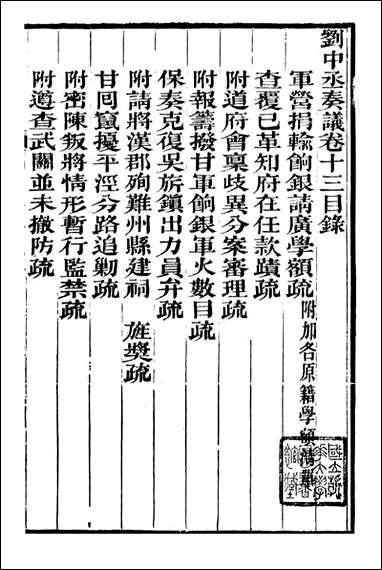 劉中丞奏議卷十三目錄
軍營捐輸餉銀請廣學額疏 附加各原籍學額清單
查覆已革知府在任款蹟疏
附道府會稟歧異分案審理疏
附報籌撥甘軍餉銀軍火數目疏
保奏克復吳旂鎮出力員弁疏
附請將漢郡殉難州縣建祠 旌獎疏
甘回竄擾平涇分路追勦疏
附密陳叛將情形暫行監禁疏
附遵查武關並未撤防疏